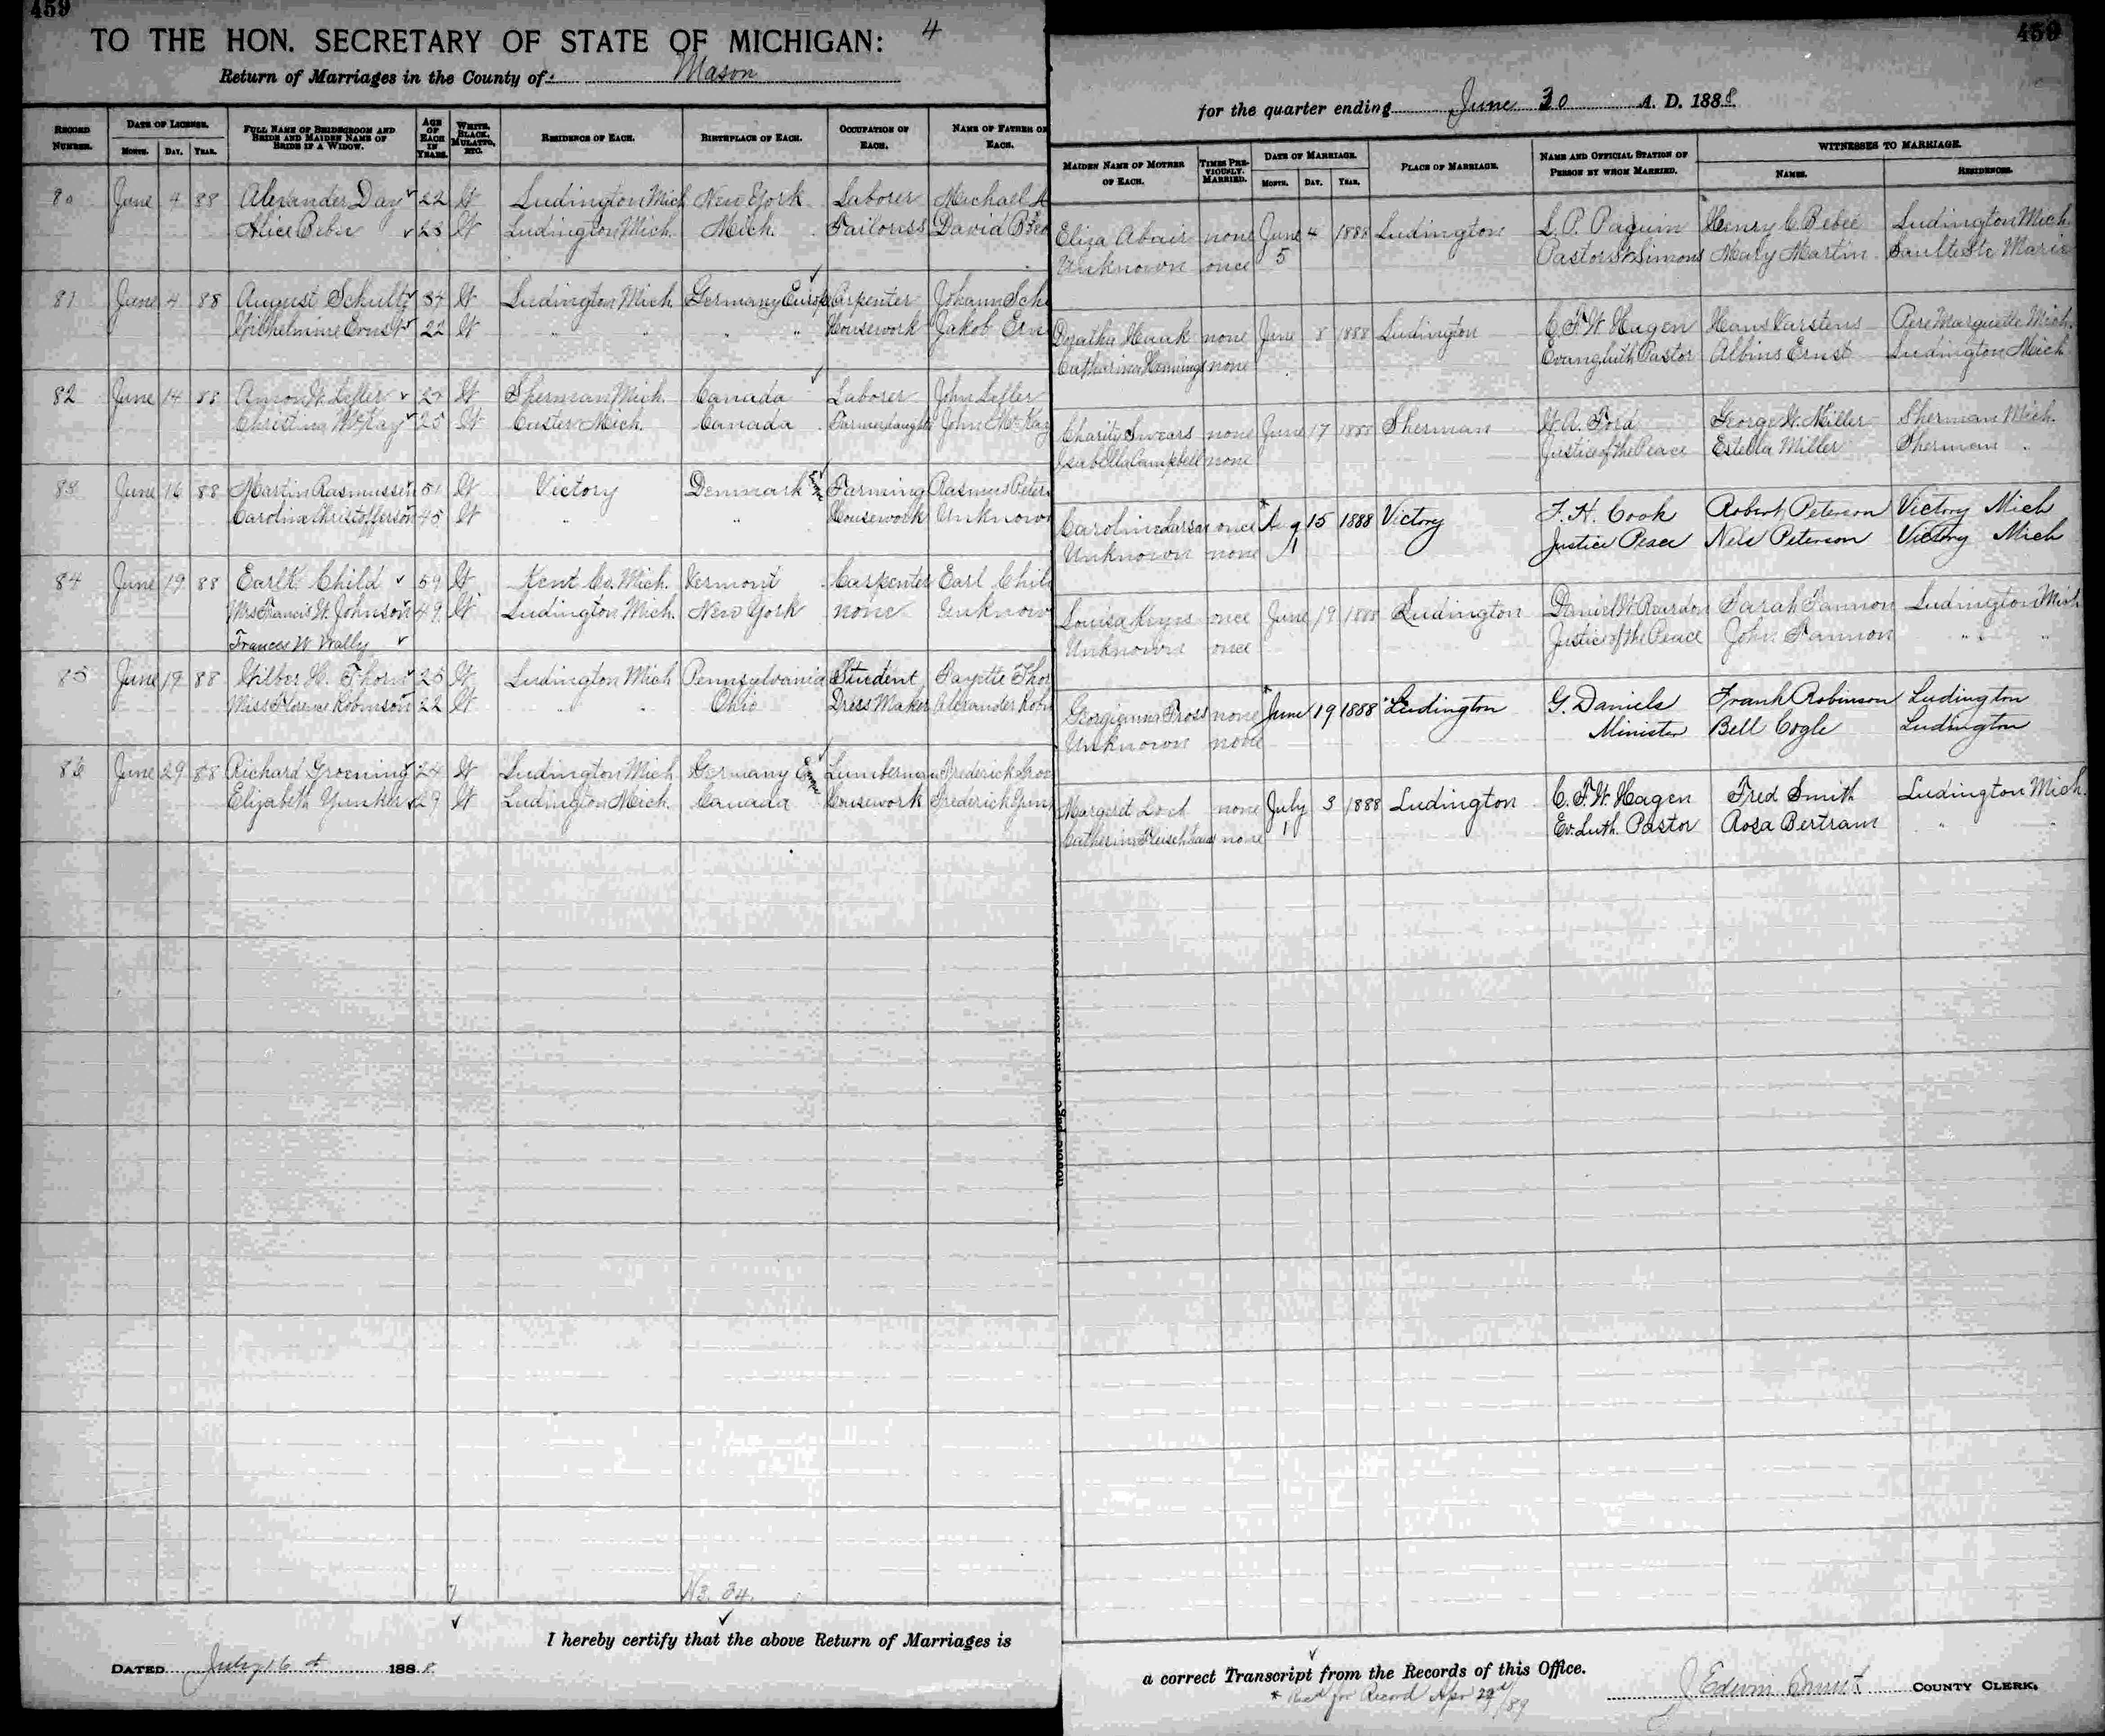 459
TO THE HON. SECRETARY OF STATE OF MICHIGAN: 4
Return of Marriages in the County of Mason
RECORD NUMBER.
DATE OF LICENSE.
MONTH. DAY. YEAR.
FULL NAME OF BRIDEGROOM AND BRIDE AND MAIDEN NAME OF BRIDE IF A WIDOW.
AGE OF EACH IN YEARS.
WHITE, BLACK, MULATTO, ETC.
RESIDENCE OF EACH.
BIRTHPLACE OF EACH.
OCCUPATION OF EACH.
NAME OF FATHER OF EACH.
80 June 4 88 Alexander Day 22 W Ludington Mich New York Laborer Michael
Alice Beber 23 W Ludington Mich. Mich. Tailoress David
81 June 4 88 August Schultz 34 W Ludington Mich Germany Europe Carpenter Johann Sch
Wilhelmine Ernst 22 W " " " " Housework Jakob Ern
82 June 14 88 Amon W. Lefler W Sherman Mich. Canada Laborer John Lefler
Christina McKay 25 W Custer Mich. Canada Farmer daughter John McKay
83 June 16 88 Martin Rasmussen 51 W Victory Denmark Farming Rasmus Peters
Caroline Christofferson 45 W " " Housework Unknow
84 June 19 88 Earl Child 59 W Kent Co. Mich. Vermont Carpenter Earl Chil
Mrs Francis W. Johnson 49 W Ludington Mich. New York none Unknow
Frances W. Wally
85 June 19 88 Wilber H. Thorn 25 W Ludington Mich Pennsylvania Student Fayette Thor
Miss Florence Robinson 22 W " " Ohio Dress Maker Alexander Robi
86 June 29 88 Richard Groening 24 W Ludington Mich Germany Lumberman Frederick Groe
Elizabeth Yunker 29 W Ludington Mich. Canada Housework Frederick Yunk
N3. 34.
I hereby certify that the above Return of Marriages is
DATED July 16 1888
459
for the quarter ending June 30 A. D. 1888
MAIDEN NAME OF MOTHER OF EACH.
TIMES PREVIOUSLY MARRIED.
DATE OF MARRIAGE.
MONTH. DAY. YEAR.
PLACE OF MARRIAGE.
NAME AND OFFICIAL STATION OF PERSON BY WHOM MARRIED.
WITNESSES TO MARRIAGE.
NAMES. RESIDENCES.
Eliza Abair none June 4 1888 Ludington L. P. Paquin Henry C. Bebee Ludington Mich.
Unknown once 5 Pastor St Simons Mary Martin Saulte Ste Marie
Doratha Hauk none June 8 1888 Ludington C. F. W. Hagen Hans Karstens Pere Marquette Mich.
Catharina Hennings none Evang luth Pastor Albins Ernst Ludington Mich
Charity Swears none June 17 1888 Sherman W. A. Ford George W. Miller Sherman Mich.
Isabella Campbell none Justice of the Peace Estella Miller Sherman
Caroline Larsen once * Aug 15 1888 Victory F. H. Cook Robert Peterson Victory Mich
Unknown none Justice Peace Nels Peterson Victory Mich
Louisa Keyes once June 19 1888 Ludington Daniel W. Reardon Sarah Fannon Ludington Mich
Unknown once Justice of the Peace John Fannon " "
Georgianna Fross none * June 19 1888 Ludington G. Daniels Frank Robinson Ludington
Unknown none Minister Bell Cogle Ludington
Margaret none July 3 1888 Ludington C. F. W. Hagen Fred Smith Ludington Mich.
Catherina none 1 Ev. Luth. Pastor Rosa Bertram " "
a correct Transcript from the Records of this Office.
* Recd for Record Apr 22d/89
J Edwin Smith COUNTY CLERK.